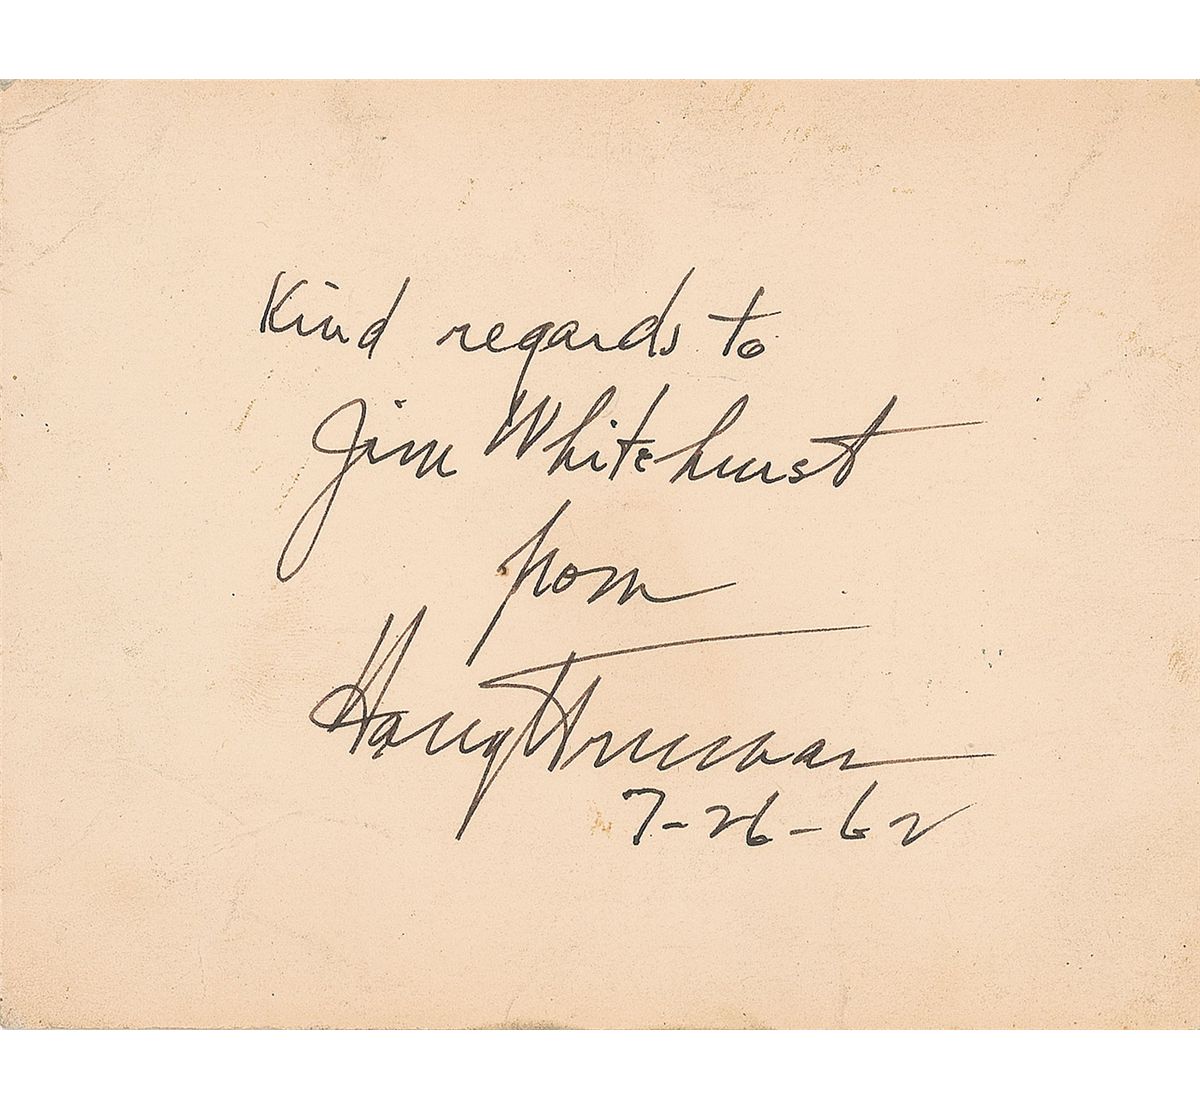 Kind regards to
Jim Whitehurst
from
Harry Truman
7-26-62